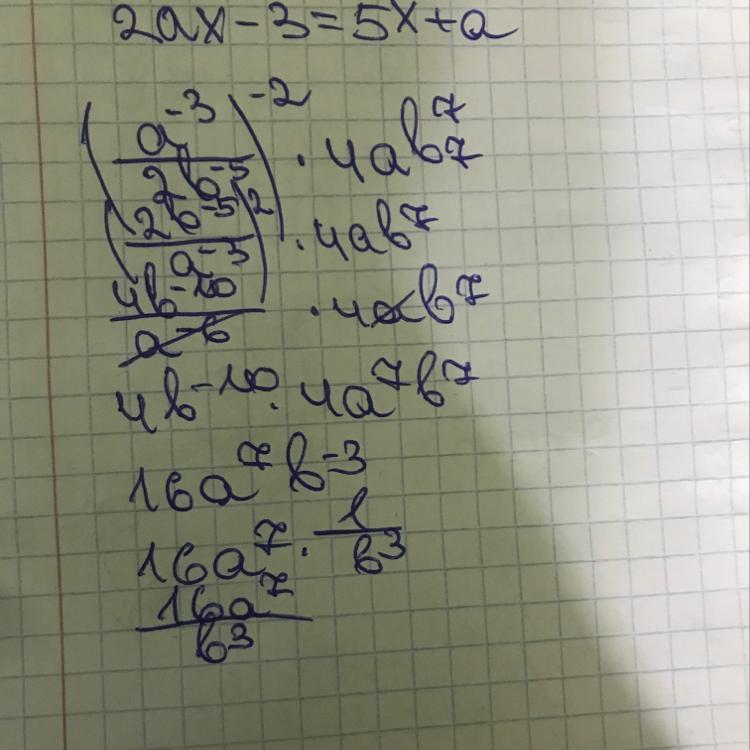 2ax - 3 = 5x + a
(a^-3 / 2b^-5)^-2 · 4ab^7
(2b^-5 / a^-3)^2 · 4ab^7
4b^-10 / a^-6 · 4ab^7
4b^-10 · 4a^7b^7
16a^7b^-3
16a^7 · 1/b^3
16a^7 / b^3